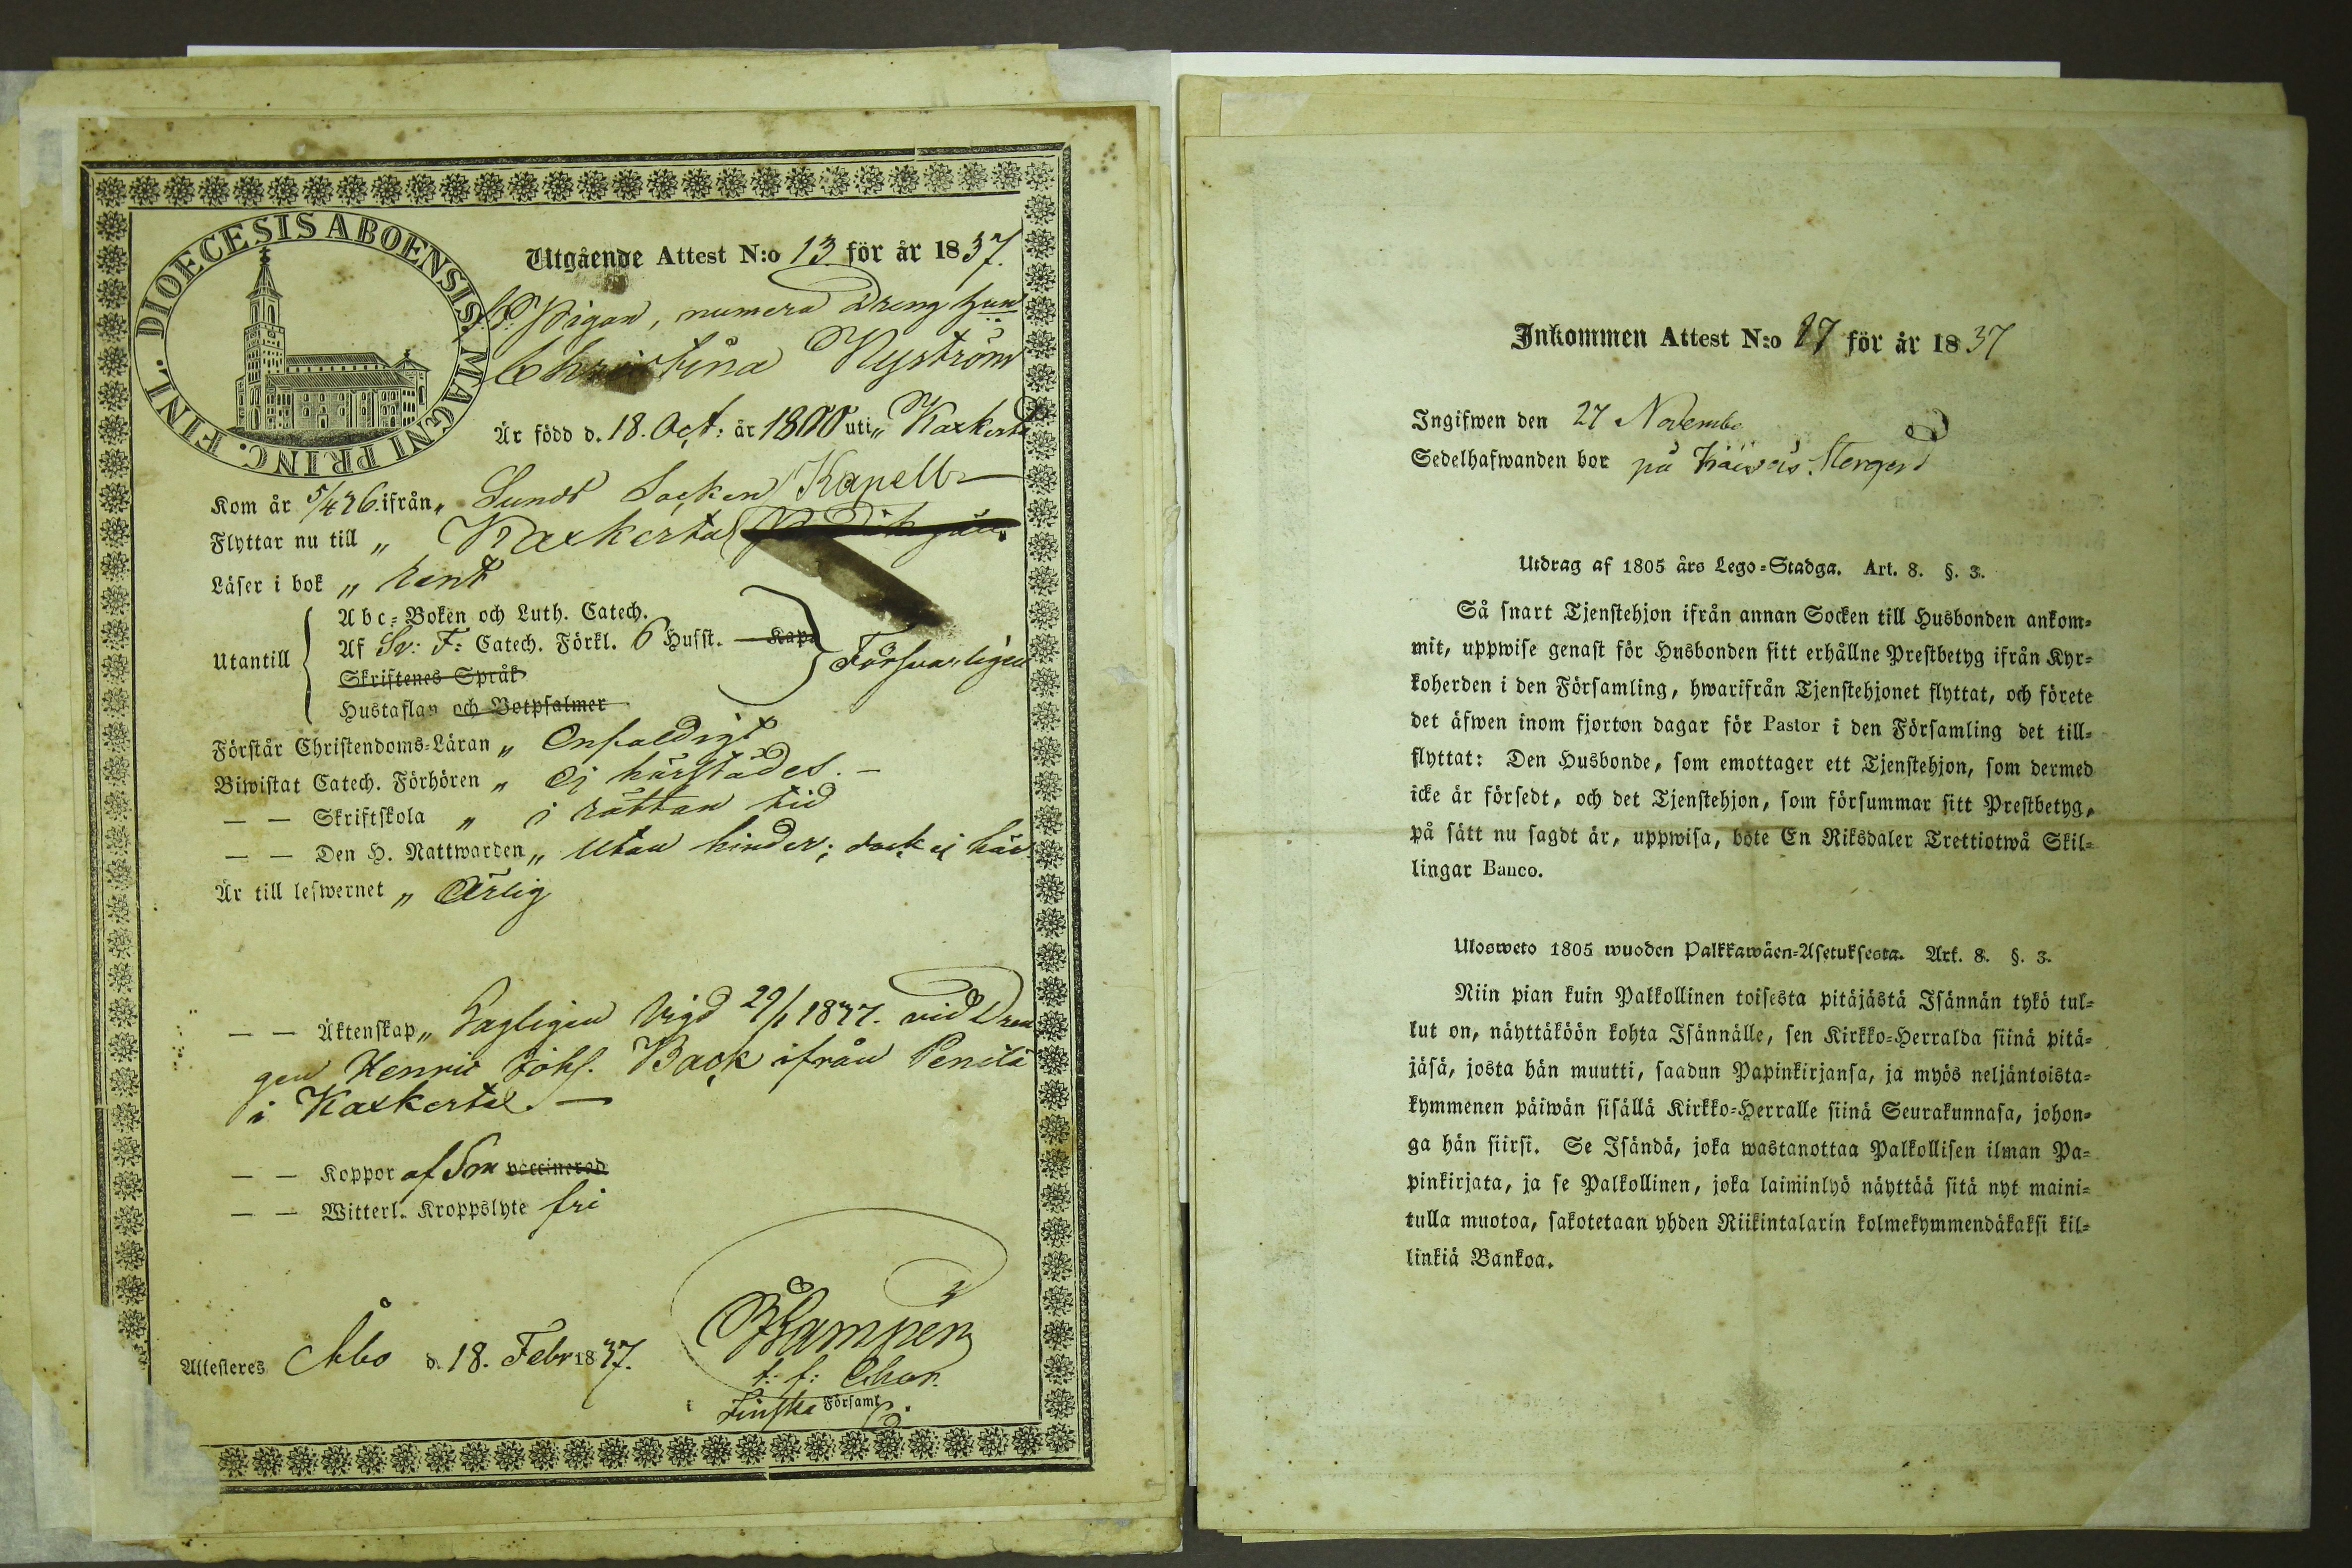 DIOECESIS ABOENSIS. MAGNI PRINC. FINL.
Utgående Attest N:o 13 för år 1837.
Pigan, numera Dreng hun
Christina Nyström
Är född d. 18. Oct: år 1800 uti„ Kaxkerta
Kom år 5/4 26. ifrån„ Lundo Socken Kapell –
Flyttar nu till „ Kaxkerta
Läser i bok „ rent
Abc-Boken och Luth. Catech.
Utantill Af Sv: F: Catech. Förkl. 6 Husst. – Kap. Försvarligen
Skriftenes Språk
Hustaflan och Botpsalmer
Förstår Christendoms-Läran „ Enfaldigt
Biwistat Catech. Förhören „ Ej härstädes. –
— — Skriftskola „ i rättan tid
— — Den H. Nattwarden„ utan hinder; dock ej här.
Är till lefwernet „ Ärlig
— — Äktenskap„ Lagligen Vigd 29/1 1837. vid Dren
gen Henric Johs. Back ifrån Penilä
i Kaxkerta. —
— — Koppor af Sm vaccinerad
— — Witterl. Kroppslyte fri
Attesteres Åbo d. 18. Febr 1837.
t: f:
i Finska Församl.
Inkommen Attest N:o 27 för år 1837
Ingifwen den 27 November
Sedelhafwanden bor på
Utdrag af 1805 års Lego-Stadga. Art. 8. §. 3.
Så snart Tjenstehjon ifrån annan Socken till Husbonden ankom-
mit, uppwise genast för Husbonden sitt erhållne Prestbetyg ifrån Kyr-
koherden i den Församling, hwarifrån Tjenstehjonet flyttat, och förete
det äfwen inom fjorton dagar för Pastor i den Församling det till-
flyttat: Den Husbonde, som emottager ett Tjenstehjon, som dermed
icke är försedt, och det Tjenstehjon, som försummar sitt Prestbetyg,
på sätt nu sagdt är, uppwisa, böte En Riksdaler Trettiotwå Skil-
lingar Banco.
Ulosweto 1805 wuoden Palkkawäen-Asetuksesta. Art. 8. §. 3.
Niin pian kuin Palkollinen toisesta pitäjästä Isännän tykö tul-
lut on, näyttäköön kohta Isännälle, sen Kirkko-Herralda siinä pitä-
jäsä, josta hän muutti, saadun Papinkirjansa, ja myös neljäntoista-
kymmenen päiwän sisällä Kirkko-Herralle siinä Seurakunnasa, johon-
ga hän siirsi. Se Isändä, joka wastanottaa Palkollisen ilman Pa-
pinkirjata, ja se Palkollinen, joka laiminlyö näyttää sitä nyt maini-
tulla muotoa, sakotetaan yhden Riikintalarin kolmekymmendäkaksi kil-
linkiä Bankoa.